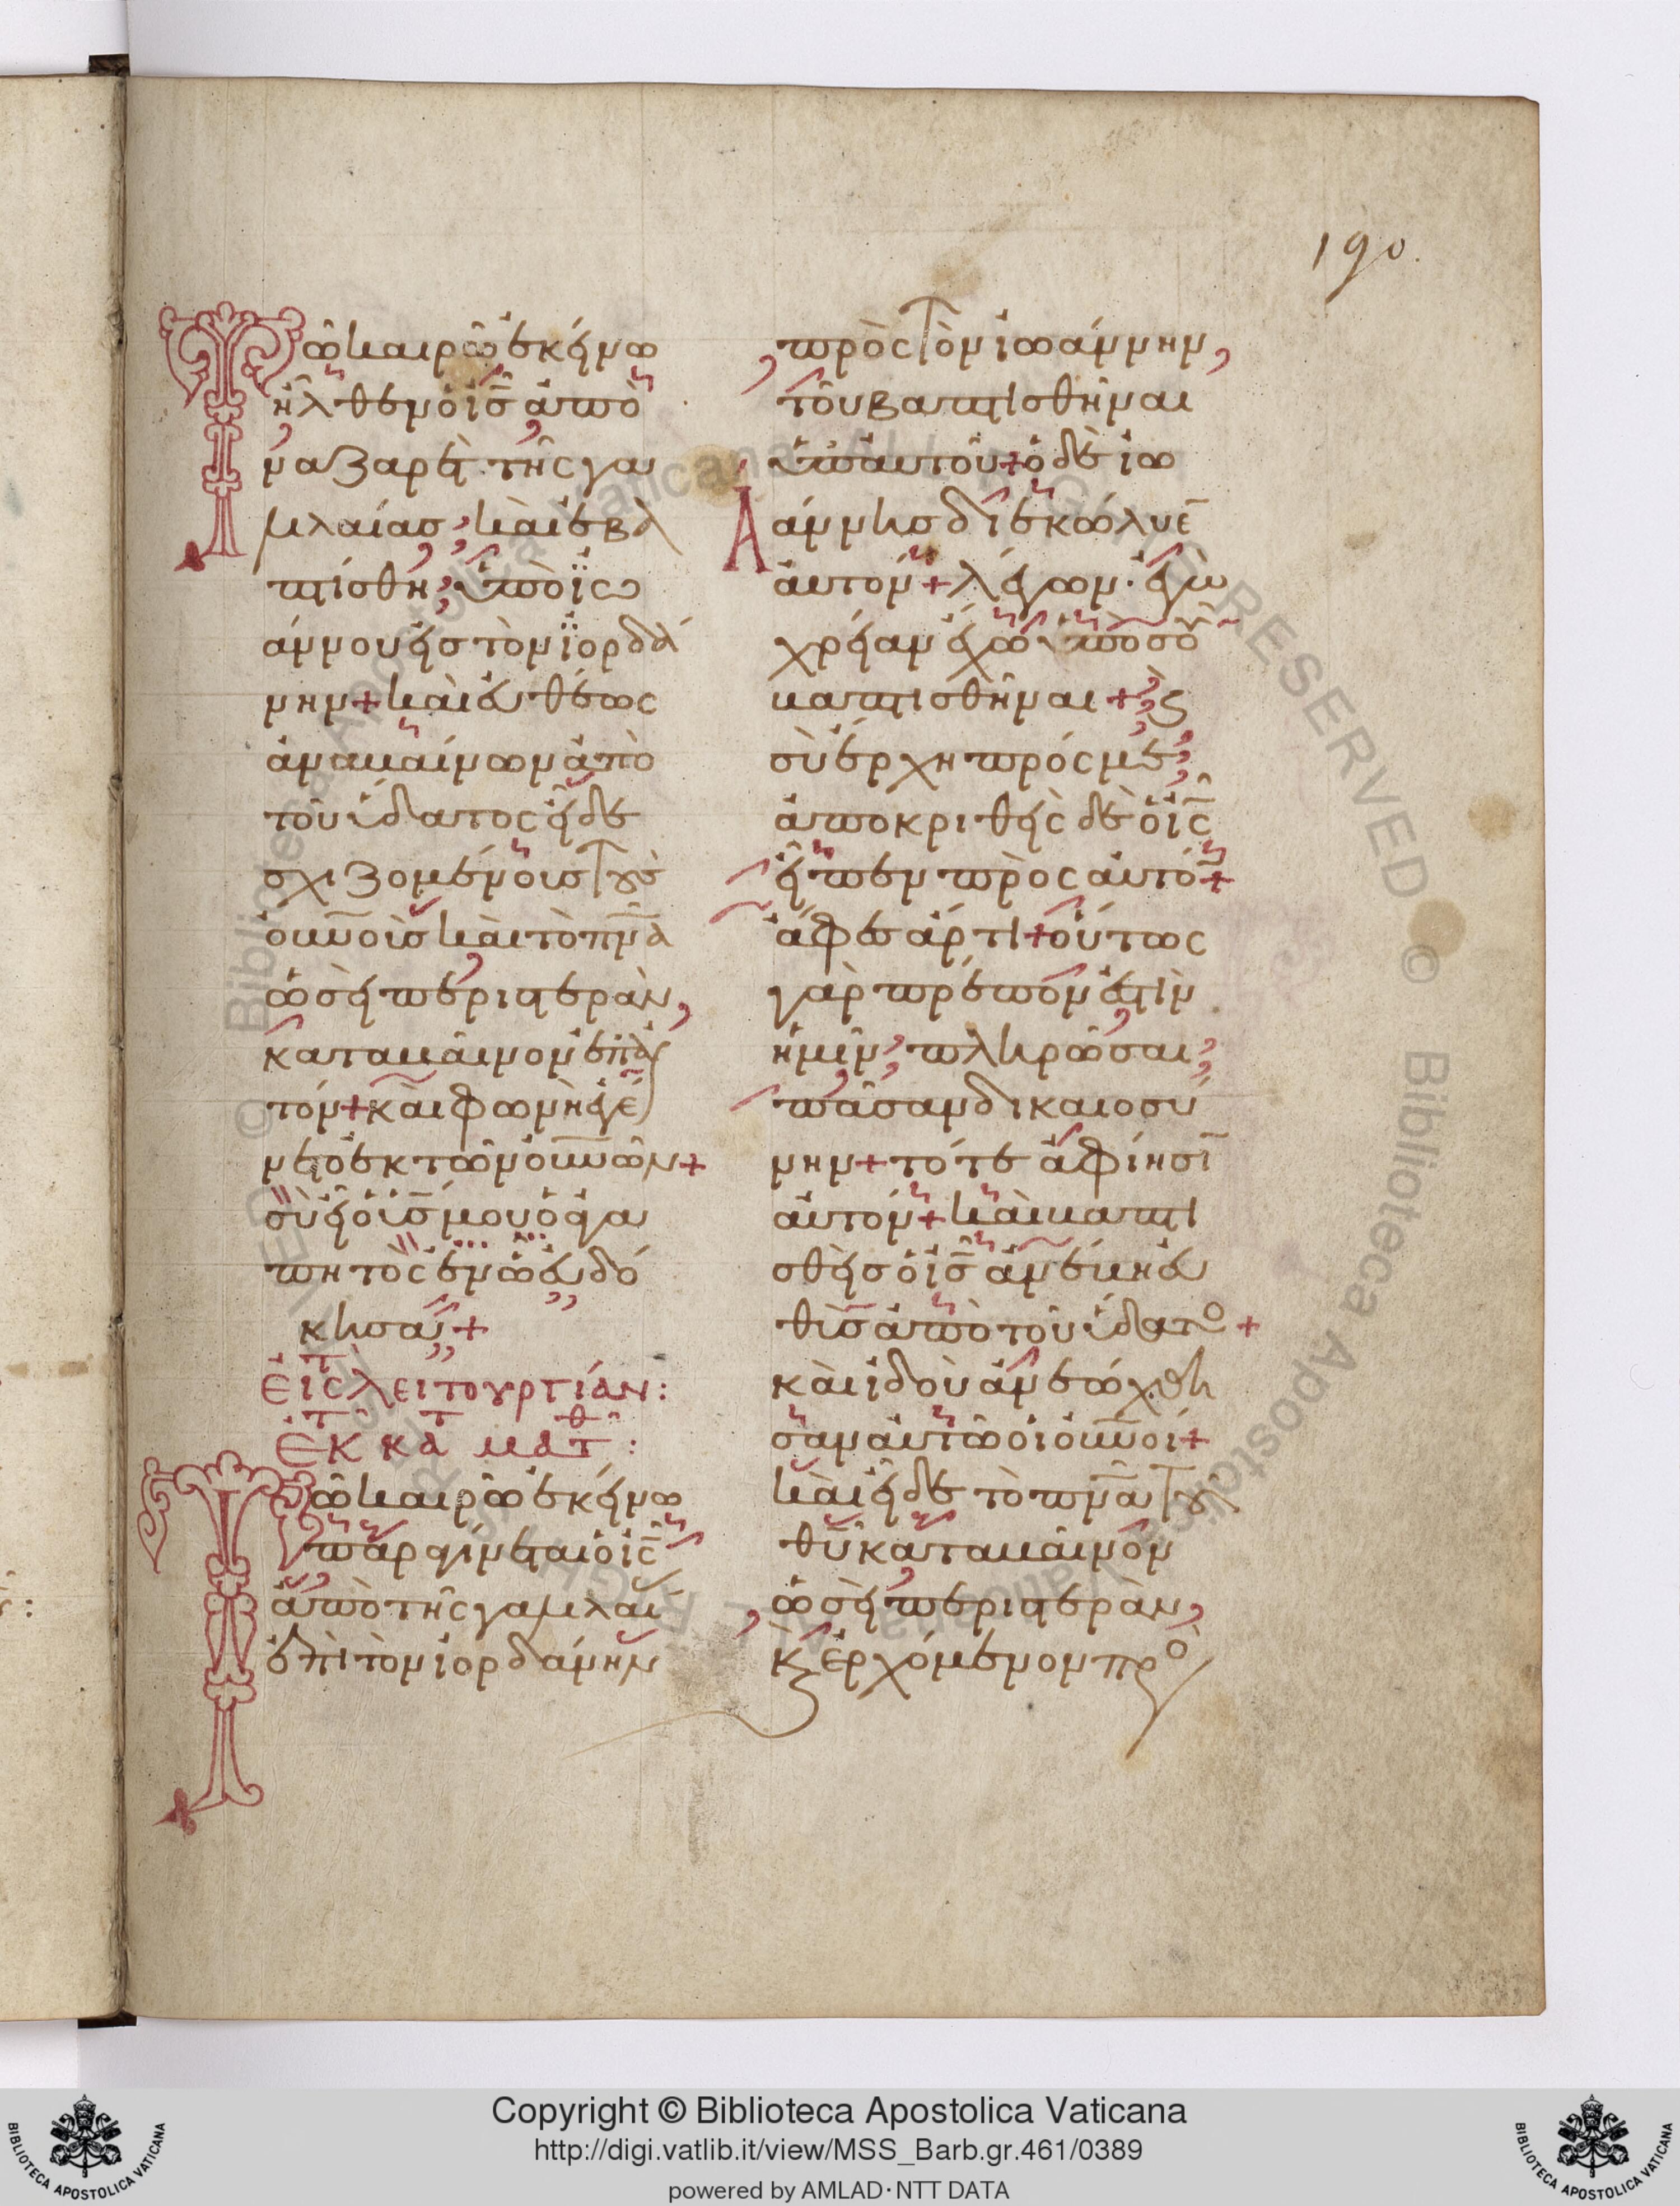 190.
Τῶ καιρῶ ἐκείνω
ἦλθεν ὁ ἰ̅ς̅ ἀπὸ
ναζαρὲτ τῆς γα
λιλαίας, καὶ ἐβα
πτίσθη, ὑπὸ ἰω
άννου εἰς τὸν ἰορδά
νην + καὶ εὐθέως
ἀναβαίνων ἀπὸ
τοῦ ὕδατος εἶδε
σχιζομένους τοὺς
οὐνοὺς καὶ τὸ πνα
ὡσεὶ περιστερὰν,
καταβαῖνον ἐπ αὐ
τόν + καὶ φωνὴ ἐγέ
νετο ἐκ τῶν οὐνῶν +
σὺ εἶ ὁ υἱς μου ὁ ἀγα
πητὸς ἐν ῶ εὐδό
κησα +
Εἰς λειτουργίαν :
Ἐκ κατ ματθ :
Τῶ καιρῶ ἐκείνω
παραγίνεται ὁ ἰς
ἀπὸ τῆς γαλιλαί
ἐπὶ τὸν ἰορδάνην
πρὸς τὸν ἰωάννην,
τοῦ βαπτισθῆναι
ὑπ αὐτοῦ + ὁ δὲ ἰω
άννης διεκώλυε
αὐτόν + λέγων · ἐγὼ
χρείαν ἔχω ὑπὸ σοῦ
βαπτισθῆναι + ϗ
σὺ ἔρχη πρός με;
ἀποκριθεὶς δὲ ὁ ἰς
εἶπεν πρὸς αὐτό +
ἄφες ἄρτι + οὕτως
γὰρ πρέπον ἐστὶν
ἡμῖν, πληρῶσαι,
πᾶσαν δικαιοσύ
νην + τότε ἀφίησι
αὐτόν + καὶ βαπτι
σθεὶς ὁ ἰς ἀνέβη εὐ
θὺς ἀπὸ τοῦ ὕδατο +
καὶ ἰδοὺ ἀνεώχθη
σαν αὐτῶ οἱ οὐνοί +
καὶ εἶδε τὸ πνα τοῦ
θυ καταβαῖνον
ὡσεὶ περιστερὰν,
ϗ ἐρχόμενον προ
Copyright © Biblioteca Apostolica Vaticana
http://digi.vatlib.it/view/MSS_Barb.gr.461/0389
powered by AMLAD·NTT DATA
BIBLIOTECA APOSTOLICA VATICANA
BIBLIOTECA APOSTOLICA VATICANA